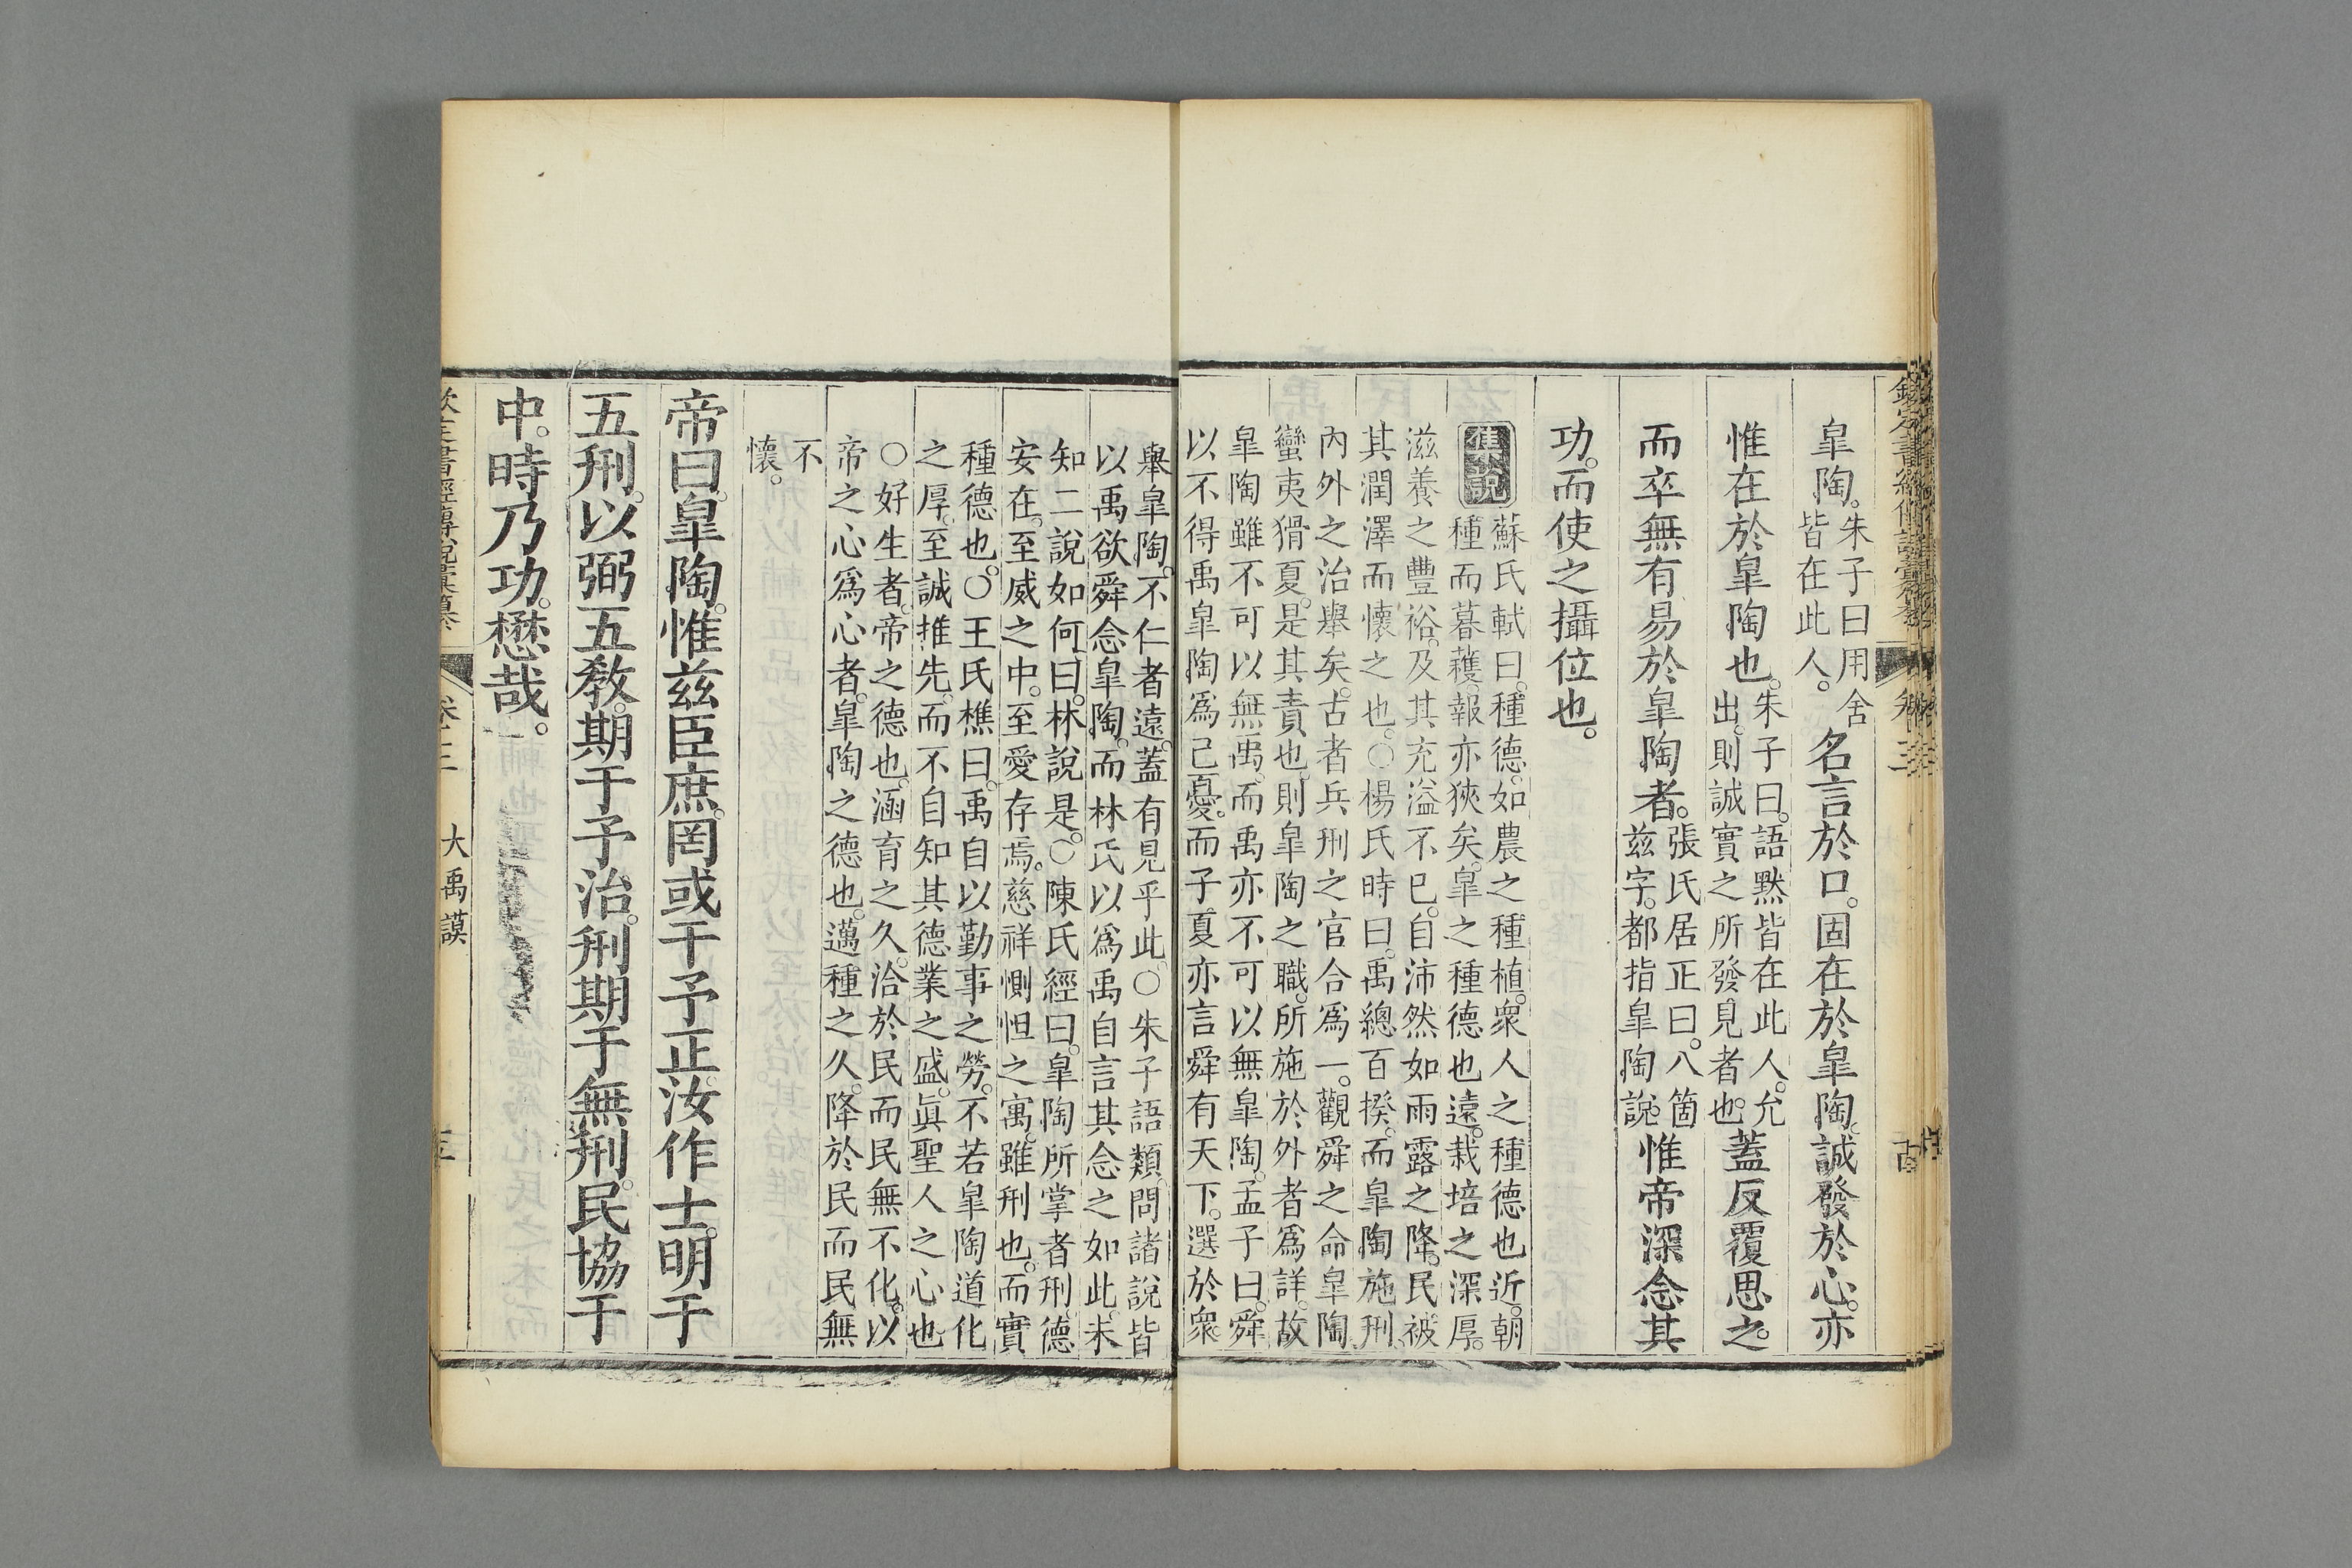 皐陶。朱子曰。用舍
皆在此人。名言於口。固在於皐陶。誠發於心。亦
惟在於皐陶也。朱子曰。語默皆在此人。允
出。則誠實之所發見者也。蓋反覆思之。
而卒無有易於皐陶者。張氏居正曰。八箇
兹字。都指皐陶說。惟帝深念其
功。而使之攝位也。
集說
蘇氏軾曰。種德。如農之種植。衆人之種德也近。朝
種而暮穫。報亦狹矣。皐之種德也遠。栽培之深厚。
滋養之豐裕。及其充溢不已。自沛然如雨露之降。民被
其潤澤而懷之也。○楊氏時曰。禹總百揆。而皐陶施刑。
內外之治舉矣。古者兵刑之官合爲一。觀舜之命皐陶。
蠻夷猾夏。是其責也。則皐陶之職。所施於外者爲詳。故
皐陶雖不可以無禹。而禹亦不可以無皐陶。孟子曰。舜
以不得禹皐陶爲己憂。而子夏亦言舜有天下。選於衆。
舉皐陶。不仁者遠。蓋有見乎此。○朱子語類。問諸說皆
以禹欲舜念皐陶。而林氏以爲禹自言其念之如此。未
知二說如何。曰。林說是。○陳氏經曰。皐陶所掌者刑。德
安在。至威之中。至愛存焉。慈祥惻怛之寓。雖刑也。而實
種德也。○王氏樵曰。禹自以勤事之勞。不若皐陶道化
之厚。至誠推先。而不自知其德業之盛。眞聖人之心也。
○好生者。帝之德也。涵育之久。洽於民而民無不化。以
帝之心爲心者。皐陶之德也。邁種之久。降於民而民無
不
懷。
帝曰。皐陶。惟兹臣庶。罔或干予正。汝作士。明于
五刑。以弼五敎。期于予治。刑期于無刑。民協于
中。時乃功。懋哉。
欽定書經傳說彙纂
卷三
大禹謨